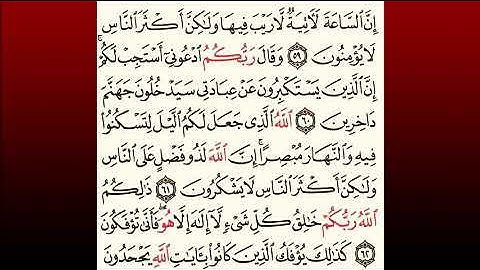 إِنَّ ٱلسَّاعَةَ لَـَٔاتِيَةٌ لَّا رَيْبَ فِيهَا وَلَـٰكِنَّ أَكْثَرَ ٱلنَّاسِ
لَا يُؤْمِنُونَ ٥٩ وَقَالَ رَبُّكُمُ ٱدْعُونِىٓ أَسْتَجِبْ لَكُمْ ۚ
إِنَّ ٱلَّذِينَ يَسْتَكْبِرُونَ عَنْ عِبَادَتِى سَيَدْخُلُونَ جَهَنَّمَ
دَاخِرِينَ ٦٠ ٱللَّهُ ٱلَّذِى جَعَلَ لَكُمُ ٱلَّيْلَ لِتَسْكُنُوا۟
فِيهِ وَٱلنَّهَارَ مُبْصِرًا ۚ إِنَّ ٱللَّهَ لَذُو فَضْلٍ عَلَى ٱلنَّاسِ
وَلَـٰكِنَّ أَكْثَرَ ٱلنَّاسِ لَا يَشْكُرُونَ ٦١ ذَٰلِكُمُ
ٱللَّهُ رَبُّكُمْ خَـٰلِقُ كُلِّ شَىْءٍ لَّآ إِلَـٰهَ إِلَّا هُوَ ۖ فَأَنَّىٰ تُؤْفَكُونَ
٦٢ كَذَٰلِكَ يُؤْفَكُ ٱلَّذِينَ كَانُوا۟ بِـَٔايَـٰتِ ٱللَّهِ يَجْحَدُونَ